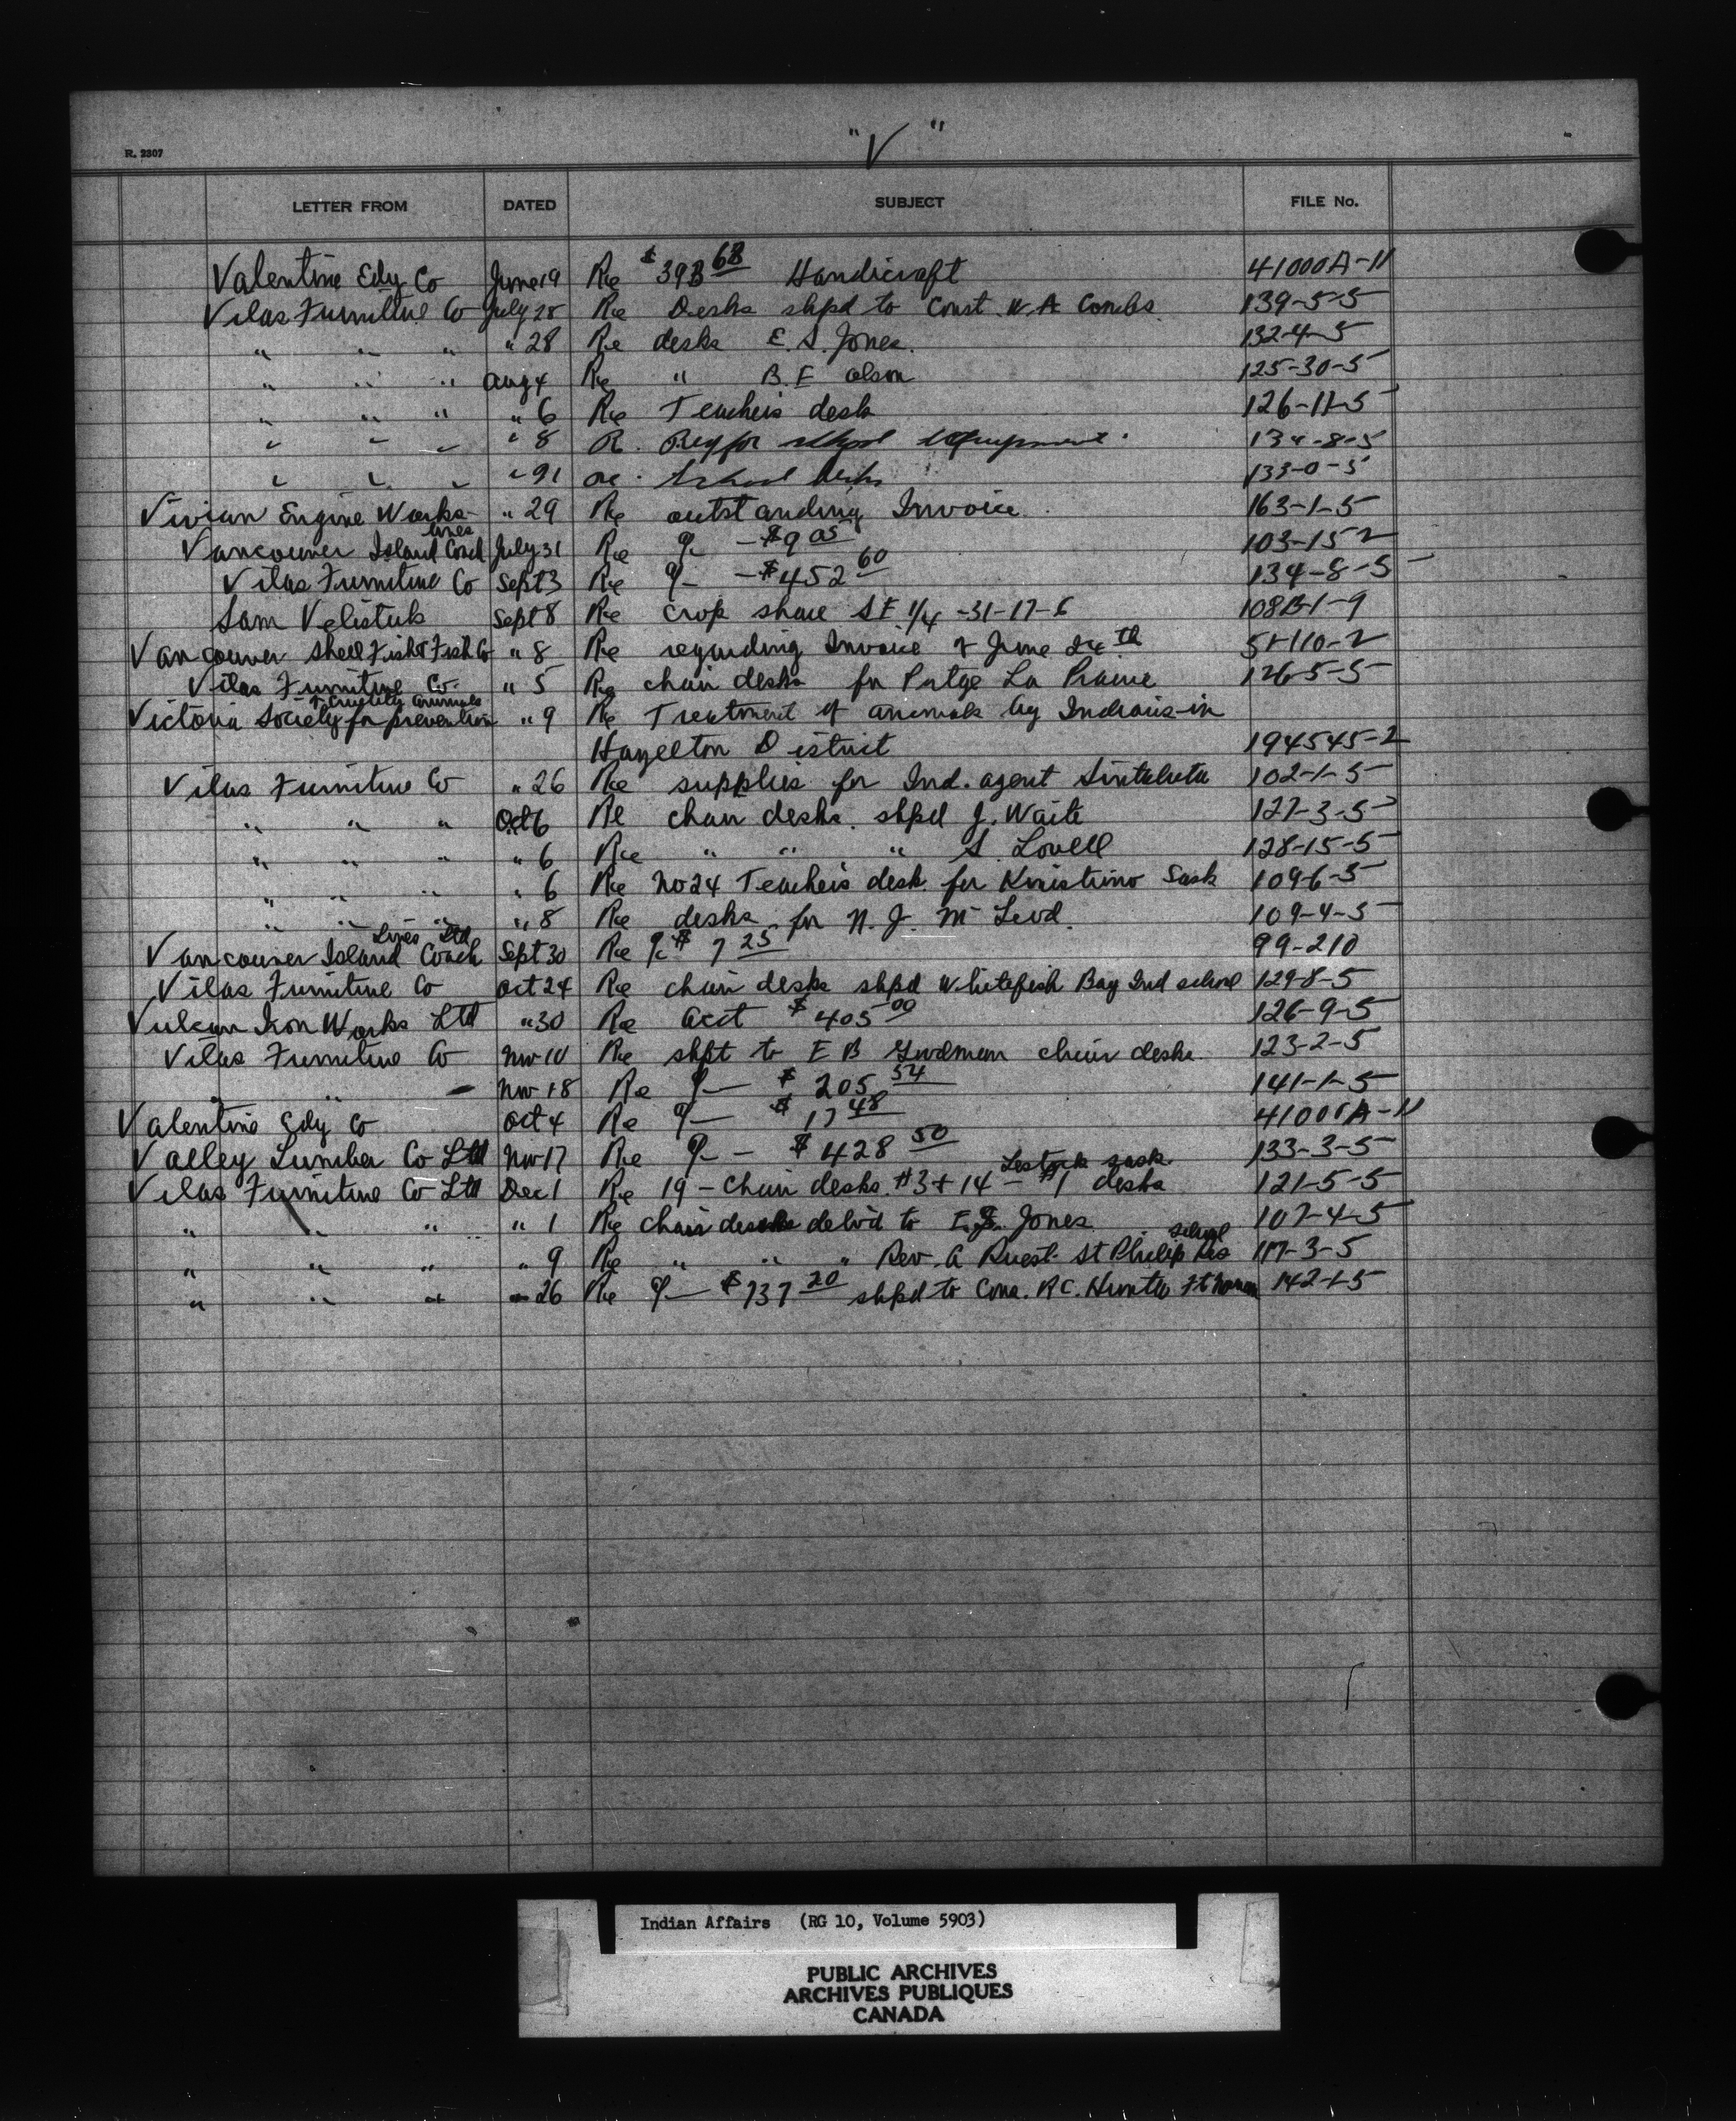 "V"
R. 2307
LETTER FROM DATED SUBJECT FILE No.
Valentine Edy Co June 19 Re $393 68 Handicraft 41000A-11
Vilas Furniture Co July 28 Re Desks shpd to Const. W.A. Combs 139-5-5
" " " " 28 Re desks E. S. Jones. 132-4-5
" " " Aug 4 Re " B. E Olson 125-30-5
" " " " 6 Re Teacher's desk 126-11-5
" " " " 8 R. Req for school equipment. 134-8-5
" " " " School desks 133-0-5
Vivian Engine Works " 29 Re outstanding Invoice. 163-1-5
Vancouver Island Coach Lines July 31 Re - $9 05 103-15-2
Vilas Furniture Co Sept 3 Re - $452 60 134-8-5
Sam Sept 8 Re crop share S E 1/4 -31-17-6 108B-1-9
Vancouver Shell Fish & Fish Co " 8 Re regarding Invoice of June 51-110-2
Vilas Furniture Co. " 5 Re chair desks for Portge La Prairie 126-5-5
Victoria Society for prevention of Cruelty animals " 9 Re Treatment of animals by Indians in
Hazelton District 194545-2
Vilas Furniture Co " 26 Re supplies for Ind. agent Sintaluta 102-1-5
" " " Oct 6 Re chair desks. shpd J. Waite 127-3-5
" " " " 6 Re " " " S. Lovell 128-15-5
" " " " 6 Re No 24 Teacher's desk for Kinistino Sask 109-6-5
" " " " 8 Re desks for N. J. McLeod. 109-4-5
Vancouver Island Coach Lines Ltd Sept 30 Re $ 7 25 99-210
Vilas Furniture Co Oct 24 Re chair desks shpd Whitefish Bay Ind school 129-8-5
Vulcan Iron Works Ltd " 30 Re acct $405 00 126-9-5
Vilas Furniture Co Nov 10 Re shpt to E B Goodman chair desks 123-2-5
" Nov 18 Re $ 205 54 141-1-5
Valentine Edy Co Oct 4 Re $ 17 48 41000A-11
Valley Lumber Co Ltd Nov 17 Re - $428 50 133-3-5
Vilas Furniture Co Ltd Dec 1 Re 19 - Chair desks #3 + 14 - #1 desks Lestock sask. 121-5-5
" " " " 1 Re chair desks delv'd to E. S. Jones 107-4-5
" " " " 9 Re " " " Rev. A Ruest. St Philip Res school 117-3-5
" " " " 26 Re $737 20 shpd to Cons. R C. Hunter Ft Norman 142-1-5
Indian Affairs (RG 10, Volume 5903)
PUBLIC ARCHIVES
ARCHIVES PUBLIQUES
CANADA